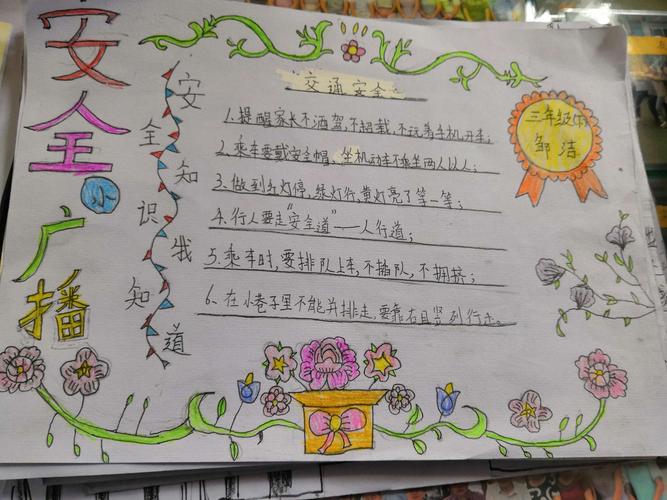 安全小广播
安全知识我知道
交通安全
1.提醒家长不酒驾,不超载,不玩着手机开车;
2.乘车要戴安全帽、坐机动车不乘坐两人以人;
3.做到红灯停,绿灯行,黄灯亮了等一等;
4.行人要走“安全道”——人行道;
5.乘车时,要排队上车,不插队,不拥挤;
6.在小巷子里不能并排走,要靠右且竖列行走。
三年级
邹洁